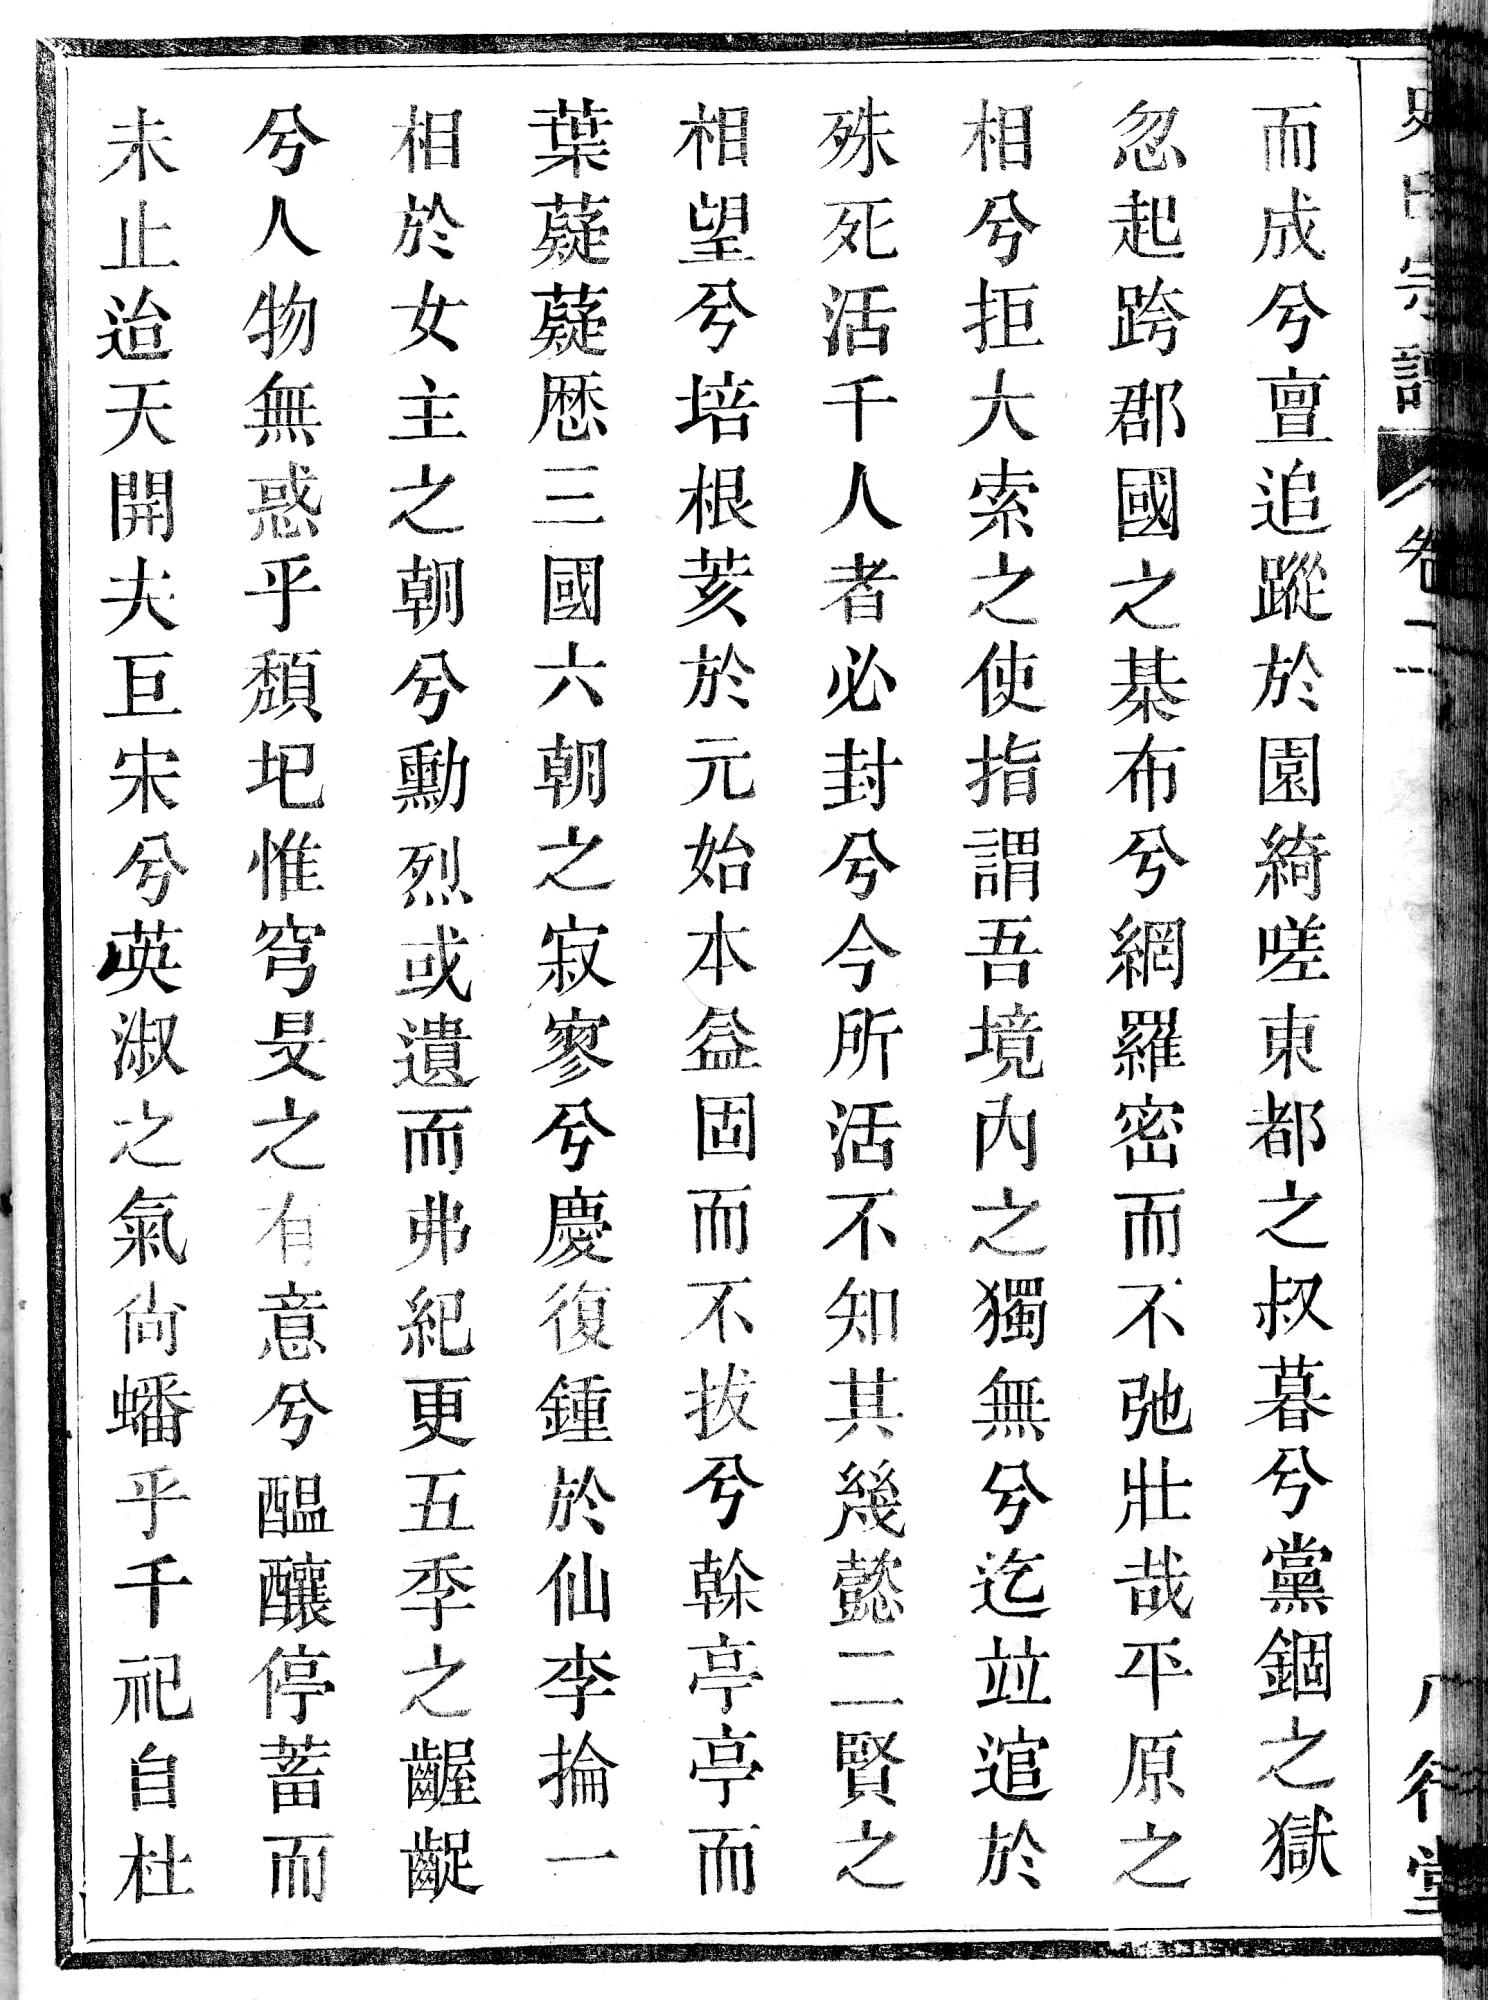 史氏宗譜 卷二 八行堂
而成兮亶追蹤於園綺嗟東都之叔暮兮黨錮之獄
忽起跨郡國之棊布兮網羅密而不弛壯哉平原之
相兮拒大索之使指謂吾境內之獨無兮迄竝逭於
殊死活千人者必封兮今所活不知其幾懿二賢之
相望兮培根荄於元始本益固而不拔兮榦亭亭而
葉薿薿厯三國六朝之寂寥兮慶復鍾於仙李掄一
相於女主之朝兮勳烈或遺而弗紀更五季之齷齪
兮人物無惑乎頹圮惟穹旻之有意兮醖釀停蓄而
未止迨天開夫巨宋兮英淑之氣尙蟠乎千祀自杜